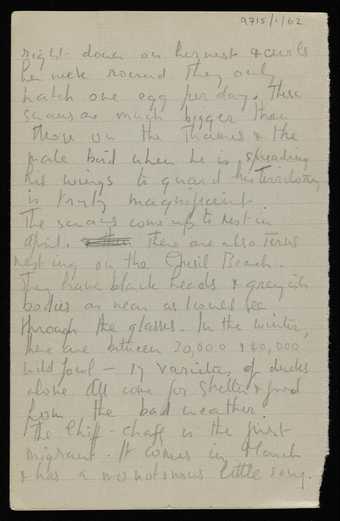 9715/1/62
right down on her nest & curls
her neck round They only
hatch one egg per day. These
swans are much bigger than
those on the Thames & the
male bird when he is spreading
his wings to guard his Territory
is truly magnificent.
The swans come up to nest in
April. There are also Terns
nesting on the Chesil Beach.
They have black heads & greyish
bodies as near as I could see
through the glasses. In the winter,
there are between 30,000 & 40,000
wild fowl – 17 varieties of ducks
alone All come for shelter & food
from the bad weather.
The Chiff-chaff is the first
migrant. It comes in March
& has a monotonous little song.